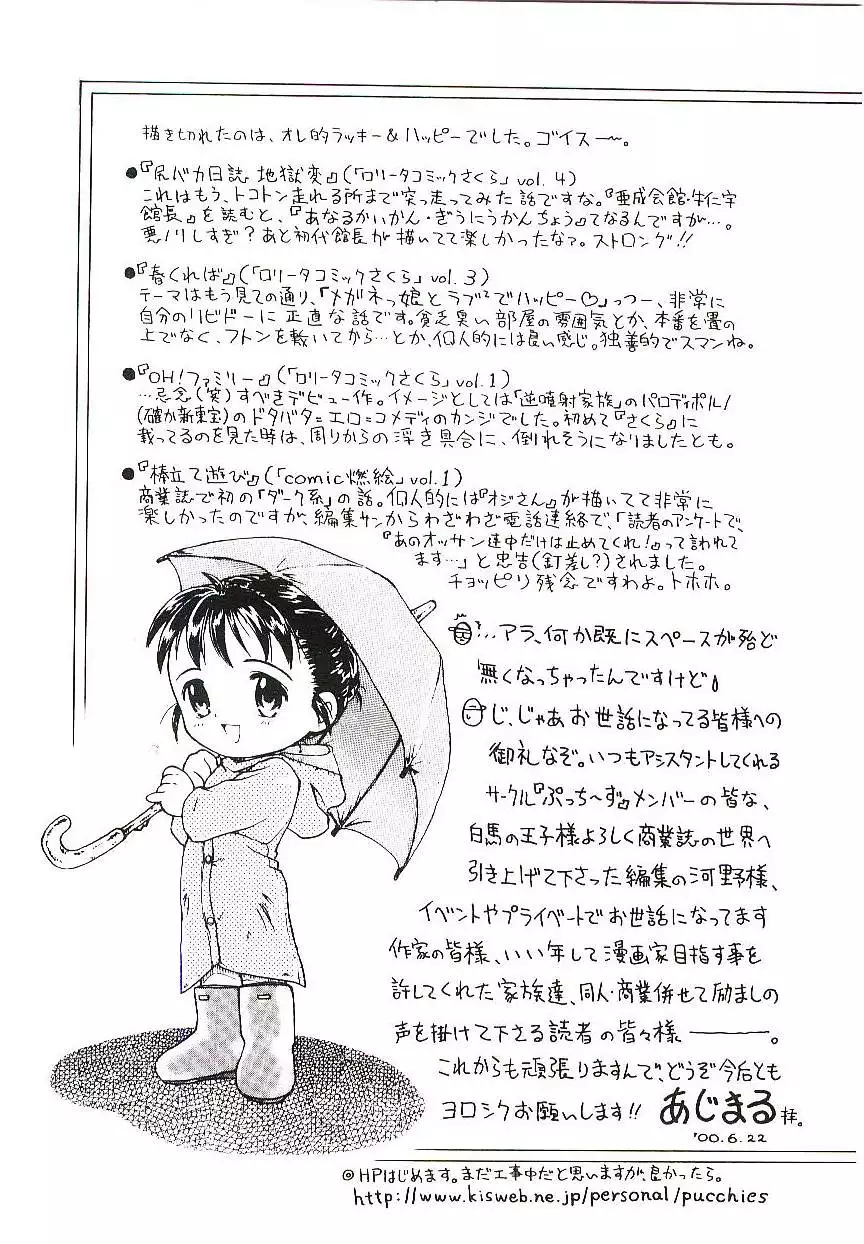 描き切れたのは、オレ的ラッキー&ハッピーでした。ゴイスー〜。
●『尻バカ日誌 地獄変』(「ロリータコミックさくら」vol.4)
これはもう、トコトン走れる所まで突っ走ってみた話ですな。『亜成会館・朱仁宇
館長』を読むと、『あなるかいかん・ぎうにうかんちょう』てなるんですが…。
悪ノリしすぎ?あと初代館長が描いてて楽しかったなァ。ストロング!!
●『春くれば』(「ロリータコミックさくら」vol.3)
テーマはもう見ての通り、「メガネっ娘とラブ²でハッピー♡」っつー、非常に
自分のリビドーに正直な話です。貧乏臭い部屋の雰囲気とか、本番を畳の
上でなく、フトンを敷いてから…とか、個人的には良い感じ。独善的でスマンね。
●『OH!ファミリー』(「ロリータコミックさくら」vol.1)
…忌念(笑)すべきデビュー作。イメージとしては「逆噴射家族」のパロディポルノ
(確か新東宝)のドタバタ=エロ=コメディのカンジでした。初めて『さくら』に
載ってるのを見た時は、周りからの浮き具合に、倒れそうになりましたとも。
●『棒立て遊び』(「comic燃絵」vol.1)
商業誌で初の「ダーク系」の話。個人的には『オジさん』が描いてて非常に
楽しかったのですが、編集サンからわざわざ電話連絡で、「読者のアンケートで、
『あのオッサン連中だけは止めてくれ!』って言われて
ます…」と忠告(釘差し?)されました。
チョッピリ残念ですわよ。トホホ。
?…アラ、何か既にスペースが殆ど
無くなっちゃったんですけど♪
じ、じゃあお世話になってる皆様への
御礼なぞ。いつもアシスタントしてくれる
サークル『ぷっち〜ず』メンバーの皆な、
白馬の王子様よろしく商業誌の世界へ
引き上げて下さった編集の河野様、
イベントやプライベートでお世話になってます
作家の皆様、いい年して漫画家目指す事を
許してくれた家族達、同人・商業併せて励ましの
声を掛けて下さる読者の皆々様―――。
これからも頑張りますんで、どうぞ今后とも
ヨロシクお願いします!! あじまる拝。
'00.6.22
◎HPはじめます。まだ工事中だと思いますが、良かったら。
http://www.kisweb.ne.jp/personal/pucchies